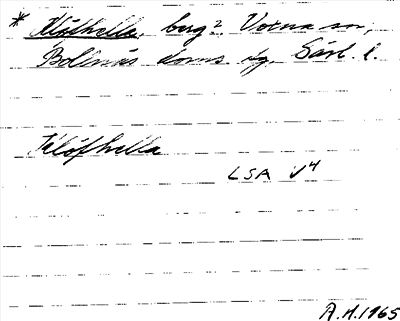 * Klöfhella, berg? Vorna sn,
Bollnäs doms dg, Gävl. l.
Klöfhella
LSA V4
A.H.1965